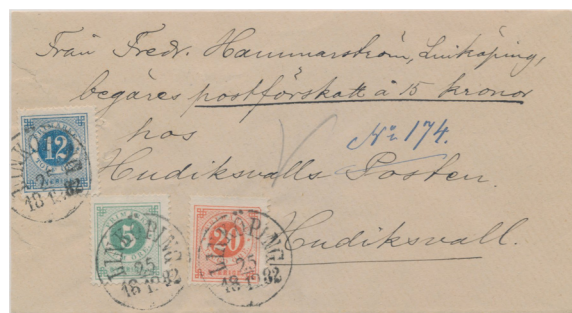 Från Fredr. Hammarström, Linköping,
begäres postförskott à 15 kronor
hos
No 174.
Hudiksvalls Posten.
Hudiksvall.
12
LINK
25
18 12 82
5
LINKÖPING
25
18 12 82
20
LINKÖPING
25
18 12 82